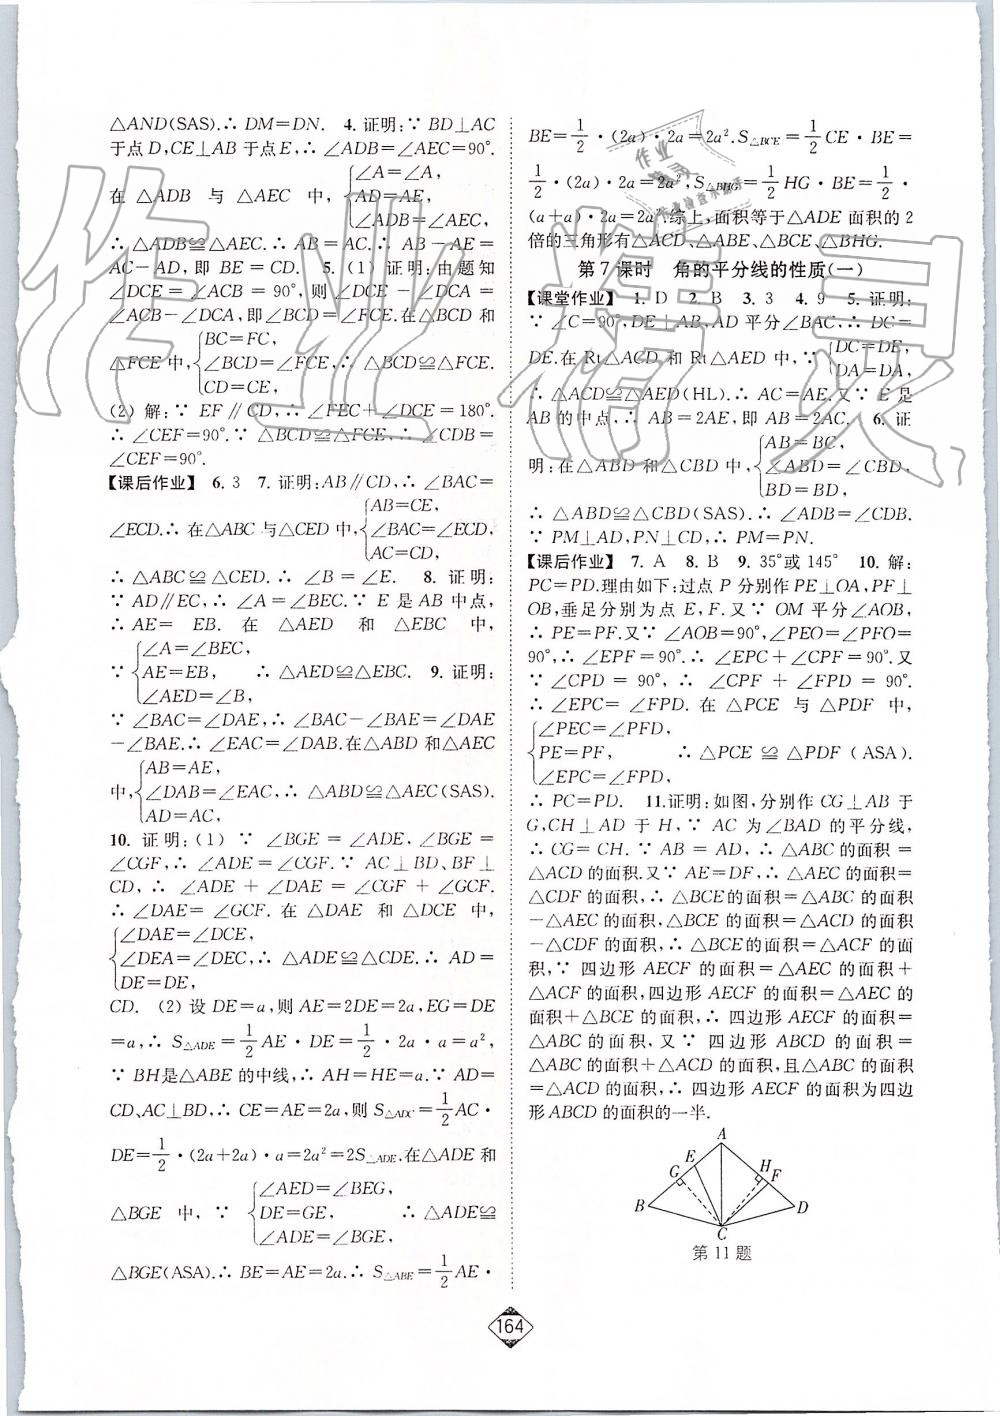 △AND(SAS).∴ DM=DN. 4. 证明:∵ BD⊥AC
于点D,CE⊥AB于点E,∴ ∠ADB=∠AEC=90°.
在 △ADB 与 △AEC 中, {∠A=∠A,
AD=AE,
∠ADB=∠AEC,
∴ △ADB≌△AEC.∴ AB=AC.∴ AB-AE=
AC-AD,即 BE=CD. 5. (1) 证明:由题知
∠DCE=∠ACB=90°,则∠DCE-∠DCA=
∠ACB-∠DCA,即∠BCD=∠FCE.在△BCD 和
△FCE中, {BC=FC,
∠BCD=∠FCE,∴ △BCD≌△FCE.
CD=CE,
(2) 解:∵ EF∥CD,∴ ∠FEC+∠DCE=180°.
∴ ∠CEF=90°.∵ △BCD≌△FCE,∴ ∠CDB=
∠CEF=90°.
【课后作业】 6. 3 7. 证明:AB∥CD,∴ ∠BAC=
∠ECD.∴ 在△ABC与△CED中, {AB=CE,
∠BAC=∠ECD,
AC=CD,
∴ △ABC≌△CED. ∴ ∠B=∠E. 8. 证明:
∵ AD∥EC,∴ ∠A=∠BEC.∵ E是AB中点,
∴AE= EB. 在 △AED 和 △EBC 中,
∵ {∠A=∠BEC,
AE=EB, ∴ △AED≌△EBC. 9. 证明:
∠AED=∠B,
∵ ∠BAC=∠DAE,∴ ∠BAC-∠BAE=∠DAE
-∠BAE.∴ ∠EAC=∠DAB.在△ABD 和△AEC
中, {AB=AE,
∠DAB=∠EAC,∴ △ABD≌△AEC(SAS).
AD=AC,
10. 证明:(1) ∵ ∠BGE=∠ADE,∠BGE=
∠CGF,∴ ∠ADE=∠CGF.∵ AC⊥BD、BF⊥
CD,∴ ∠ADE+∠DAE=∠CGF+∠GCF.
∴ ∠DAE=∠GCF.在△DAE 和△DCE 中,
{∠DAE=∠DCE,
∠DEA=∠DEC,∴ △ADE≌△CDE.∴ AD=
DE=DE,
CD. (2) 设 DE=a,则 AE=2DE=2a,EG=DE
=a,∴ S△ADE=1/2AE·DE=1/2·2a·a=a²,
∵ BH是△ABE的中线,∴ AH=HE=a.∵ AD=
CD、AC⊥BD,∴ CE=AE=2a,则 S△ADC=1/2AC·
DE=1/2·(2a+2a)·a=2a²=2S△ADE.在△ADE 和
△BGE 中,∵ {∠AED=∠BEG,
DE=GE, ∴ △ADE≌
∠ADE=∠BGE,
△BGE(ASA).∴ BE=AE=2a.∴ S△ABE=1/2AE·
BE=1/2·(2a)·2a=2a².S△BCE=1/2CE·BE=
1/2·(2a)·2a=2a²,S△BHG=1/2HG·BE=1/2·
(a+a)·2a=2a².综上,面积等于△ADE 面积的2
倍的三角形有△ACD、△ABE、△BCE、△BHG.
第7课时 角的平分线的性质(一)
【课堂作业】 1. D 2. B 3. 3 4. 9 5. 证明:
∵ ∠C=90°,DE⊥AB,AD平分∠BAC,∴ DC=
DE.在 Rt△ACD 和 Rt△AED 中,∵ {DC=DE,
DA=DA,
∴ △ACD≌△AED(HL).∴ AC=AE.又∵ E是
AB的中点,∴ AB=2AE,即 AB=2AC. 6. 证
明:在△ABD 和△CBD 中, {AB=BC,
∠ABD=∠CBD,
BD=BD,
∴ △ABD≌△CBD(SAS).∴ ∠ADB=∠CDB.
∵ PM⊥AD,PN⊥CD,∴ PM=PN.
【课后作业】 7. A 8. B 9. 35°或 145° 10. 解:
PC=PD.理由如下:过点 P 分别作 PE⊥OA,PF⊥
OB,垂足分别为点 E,F.又∵ OM 平分∠AOB,
∴ PE=PF.又∵ ∠AOB=90°,∠PEO=∠PFO=
90°,∴ ∠EPF=90°.∴ ∠EPC+∠CPF=90°.又
∵ ∠CPD = 90°, ∴ ∠CPF + ∠FPD = 90°.
∴ ∠EPC=∠FPD.在△PCE 与△PDF 中,
{∠PEC=∠PFD,
PE=PF, ∴ △PCE ≌ △PDF (ASA).
∠EPC=∠FPD,
∴ PC=PD. 11.证明:如图,分别作CG⊥AB 于
G,CH⊥AD 于H,∵ AC 为∠BAD 的平分线,
∴ CG=CH.∵ AB=AD,∴ △ABC 的面积=
△ACD的面积.又∵ AE=DF,∴ △AEC的面积=
△CDF的面积,∴ △BCE的面积=△ABC的面积
-△AEC 的面积,△BCE 的面积=△ACD 的面积
-△CDF的面积,∴ △BCE的面积=△ACF的面
积,∵ 四边形 AECF 的面积=△AEC 的面积+
△ACF的面积,四边形 AECF 的面积=△AEC 的
面积+△BCE的面积,∴ 四边形 AECF 的面积=
△ABC 的面积,又∵ 四边形 ABCD 的面积=
△ABC的面积+△ACD的面积,且△ABC的面积
=△ACD的面积,∴ 四边形 AECF 的面积为四边
形 ABCD 的面积的一半.
A
E
G
H
F
B
D
C
第 11 题
164
作业精灵